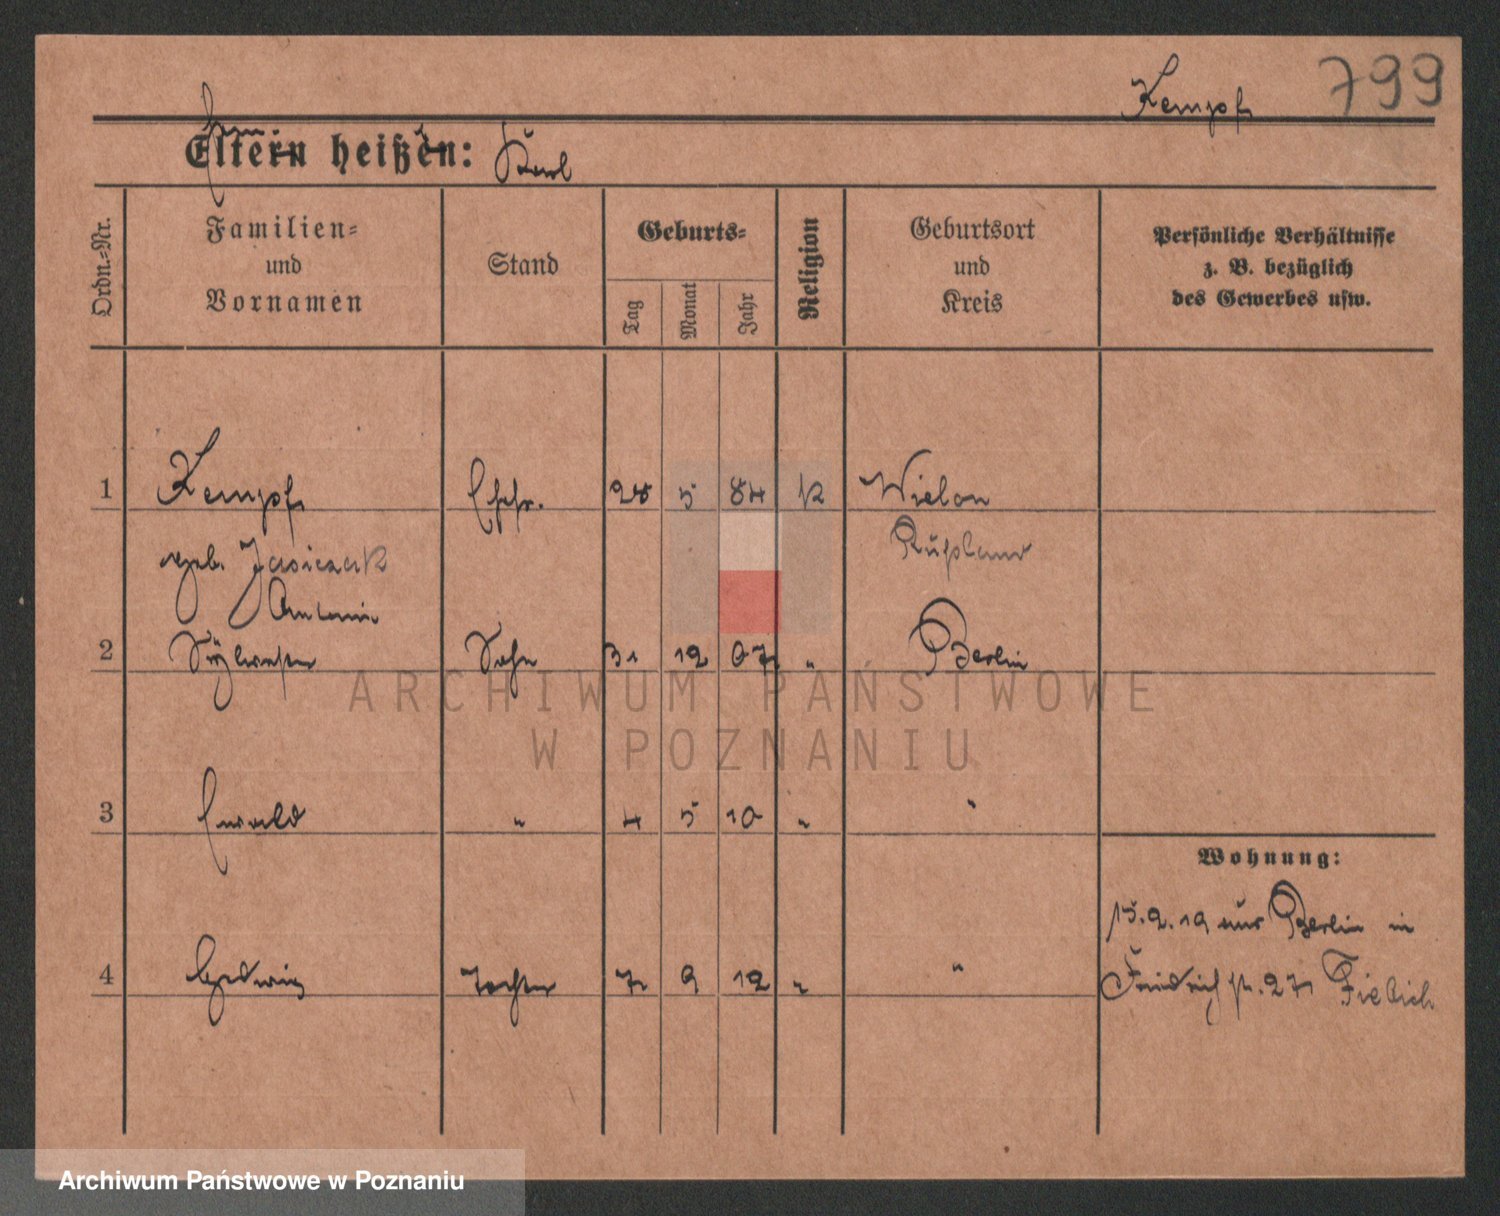 Kempf 799
Eltern heißen: Karl
Ordn.-Nr.
Familien- und Vornamen
Stand
Geburts-
Tag
Monat
Jahr
Religion
Geburtsort und Kreis
Persönliche Verhältnisse z. B. bezüglich des Gewerbes usw.
1 Kempf Ehefr. 28 5 84 K Wielon
geb. Jasiczak Rußland
Antonie
2 Sylvester Sohn 31 12 07 " Berlin
3 Ewald " 4 5 10 " "
Wohnung:
15.9.19 aus Berlin in
4 Hedwig Tochter 7 9 12 " " Friedrichstr. 27 Fiebich
ARCHIWUM PAŃSTWOWE
W POZNANIU
Archiwum Państwowe w Poznaniu